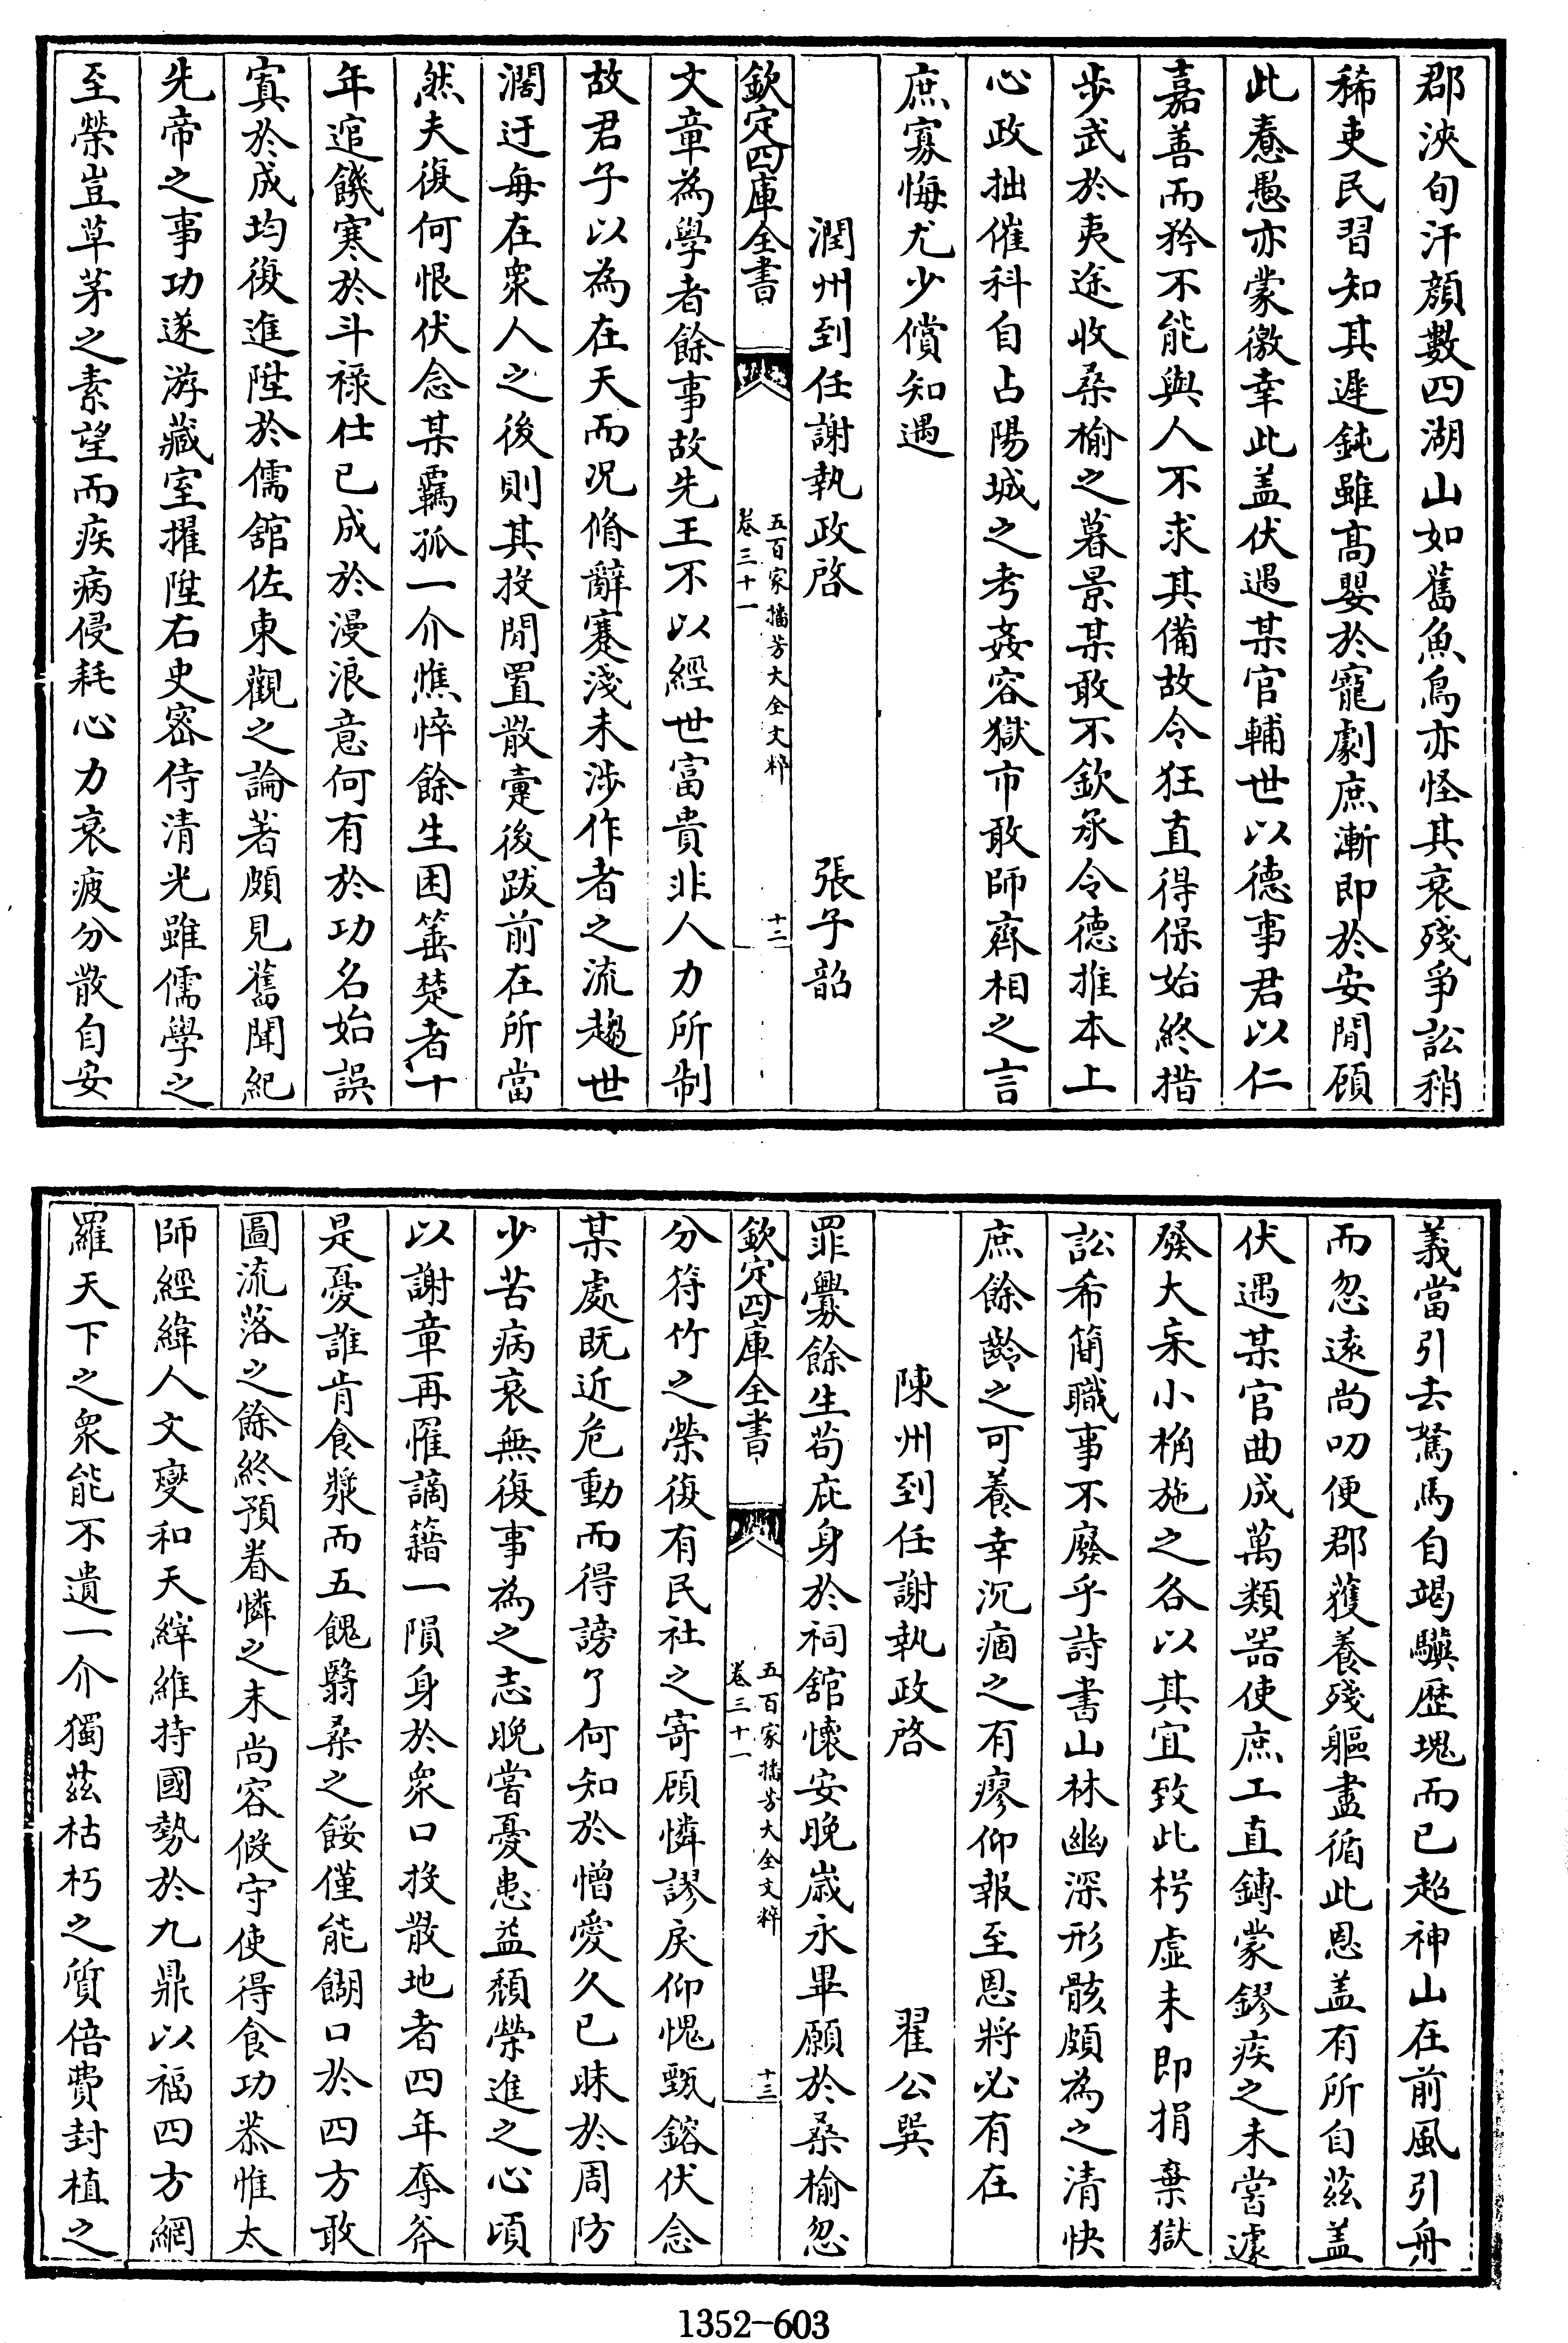 郡浹旬汗顔數四湖山如舊魚鳥亦怪其衰殘爭訟稍
稀吏民習知其遲鈍雖髙嬰於寵劇庶漸即於安閒顧
此惷愚亦蒙徼幸此盖伏遇某官輔世以德事君以仁
嘉善而矜不能與人不求其備故令狂直得保始終措
歩武於夷途收桑榆之暮景某敢不欽承令德推本上
心政拙催科自占陽城之考姦容獄市敢師齊相之言
庶寡悔尤少償知遇
潤州到任謝執政啓　張子韶
欽定四庫全書
五百家播芳大全文粹
卷三十一
十二
文章為學者餘事故先王不以經世富貴非人力所制
故君子以為在天而况脩辭蹇淺未渉作者之流趨世
濶迂毎在衆人之後則其投閒置散疐後跋前在所當
然夫復何恨伏念某羈孤一介憔悴餘生困箠楚者十
年逭饑寒於斗禄仕已成於漫浪意何有於功名始誤
寘於成均復進陞於儒舘佐東觀之論著頗見舊聞紀
先帝之事功遂游藏室擢陞右史密侍清光雖儒學之
至榮豈草茅之素望而疾病侵耗心力衰疲分散自安
義當引去駑馬自竭驥歴塊而已超神山在前風引舟
而忽逺尚叨便郡獲養殘軀盡循此恩盖有所自兹盖
伏遇某官曲成萬類器使庶工直鏄蒙鏐疾之未嘗遽
發大宋小桷施之各以其宜致此枵虚未即捐棄獄
訟希簡職事不廢乎詩書山林幽深形骸頗為之清快
庶餘齡之可養幸沉痼之有瘳仰報至恩將必有在
陳州到任謝執政啓　翟公巽
罪釁餘生苟庇身於祠舘懐安晚歳永畢願於桑榆忽
欽定四庫全書
五百家播芳大全文粹
卷三十一
十三
分符竹之榮復有民社之寄顧憐謬戾仰愧甄鎔伏念
某處既近危動而得謗了何知於憎愛久已昧於周防
少苦病衰無復事為之志晚嘗憂患益頽榮進之心頃
以謝章再罹謫籍一隕身於衆口投散地者四年奪爷
是憂誰肯食漿而五餽翳桑之餒僅能餬口於四方敢
圖流落之餘終預眷憐之末尚容假守使得食功恭惟太
師經緯人文燮和天縡維持國勢於九鼎以福四方網
羅天下之衆能不遺一介獨兹枯朽之質倍費封植之
1352-603